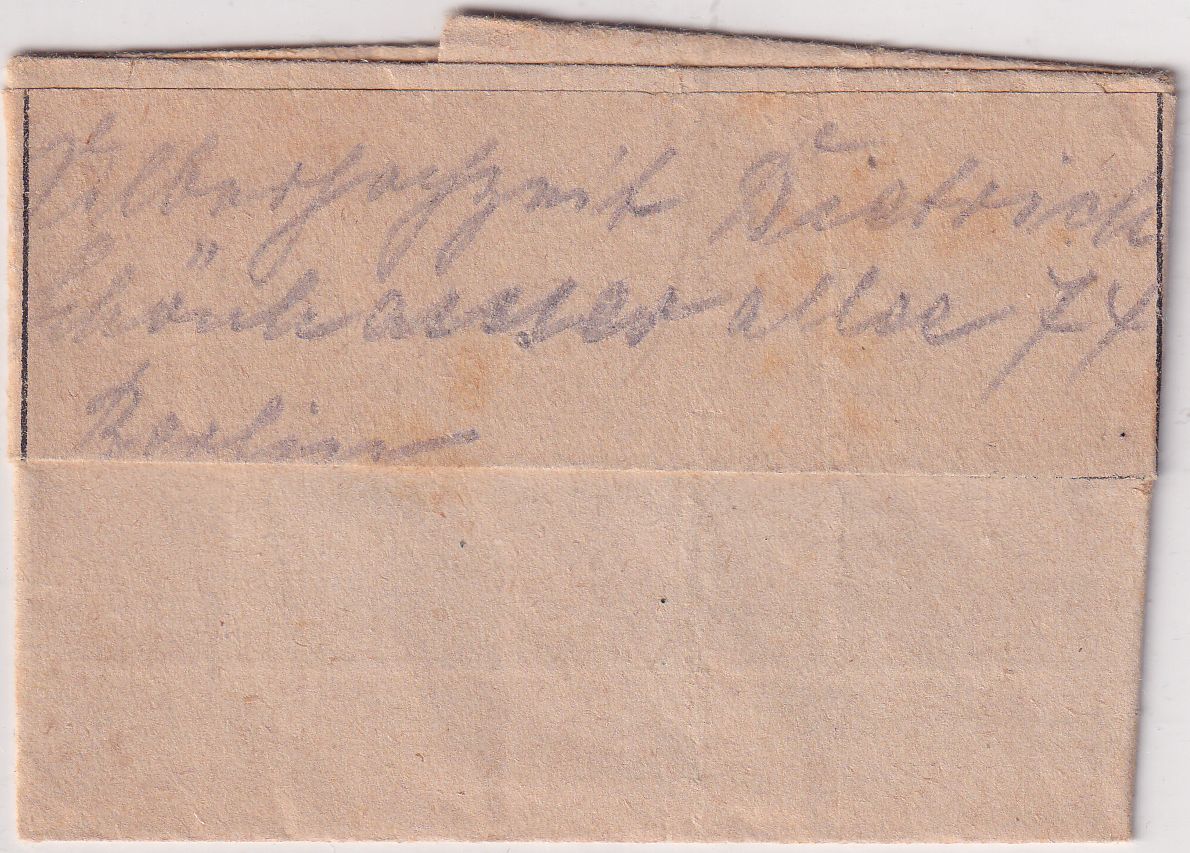 Silberhochzeit Dietrich
Schönhauser allee 74
Berlin